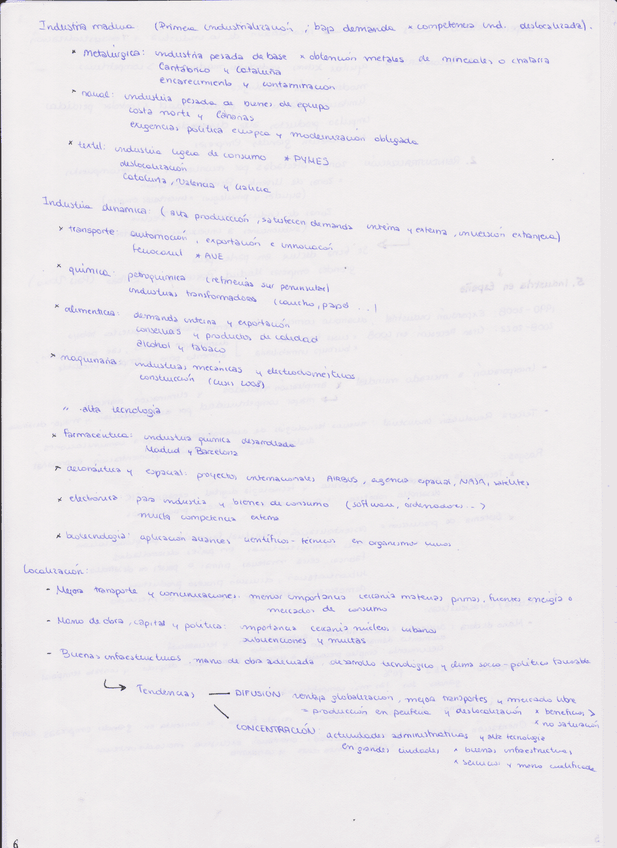 Industria madura (Primera industrialización, baja demanda x competencia ind. deslocalizada).
* metalúrgica: industria pesada de base * obtención metales de minerales o chatarra
Cantábrico y Cataluña
encarecimiento y contaminación
* naval: industria pesada de bienes de equipo
costa norte y Canarias
exigencias política europea y modernización obligada
* textil: industria ligera de consumo * PYMES
deslocalización
Cataluña, Valencia y Galicia
Industria dinámica (alta producción, satisfacen demanda interna y externa, inversión extranjera)
* transporte: automoción, exportación e innovación
ferrocarril * AVE
* química: petroquímica (refinerías sur peninsular)
industrias transformadoras (caucho, papel ...)
* alimenticia: demanda interna y exportación
conservas y productos de calidad
alcohol y tabaco
* maquinaria: industrias mecánicas y electrodomésticos
construcción (crisis 2008)
" alta tecnología
* Farmacéutica: industria química desarrollada
Madrid y Barcelona
* aeronáutica y espacial: proyectos internacionales AIRBUS, agencia espacial, NASA, satélites
* electrónica para industria y bienes de consumo (software, ordenadores ...)
mucha competencia externa
* biotecnología: aplicación avances científico-técnicos en organismos vivos.
Localización:
- Mejora transporte y comunicaciones: menor importancia cercanía materias primas, fuentes energía o
mercados de consumo
- Mano de obra, capital y política: importancia cercanía núcleos urbanos
subvenciones y multas
- Buenas infraestructuras, mano de obra adecuada, desarrollo tecnológico y clima socio-político favorable
Tendencias — DIFUSIÓN ventaja globalización, mejora transportes y mercado libre
= producción en periferia y deslocalización * beneficios
* no saturación
CONCENTRACIÓN actividades administrativas y alta tecnología
en grandes ciudades * buenas infraestructuras
* servicios y mano cualificada
6